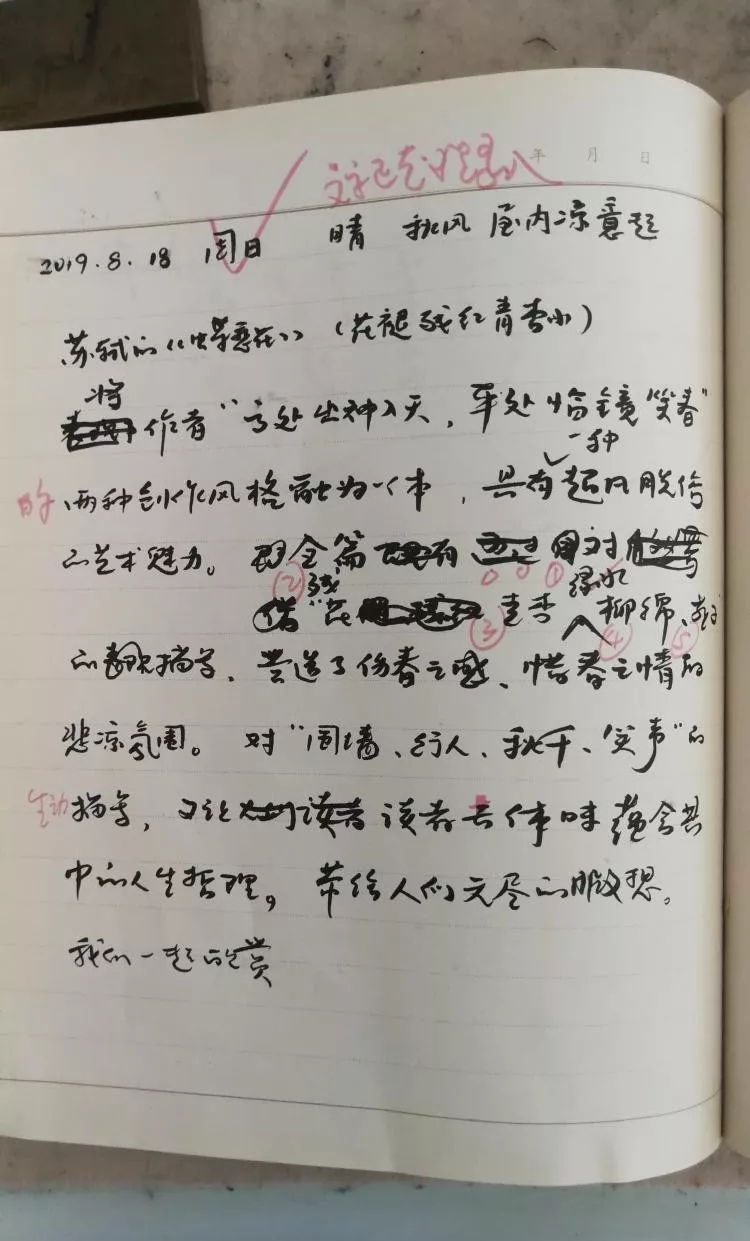 年 月 日
文字已
2019.8.18 周日 晴 秋风 屋内凉意起
苏轼的《蝶恋花》（花褪残红青杏小）
将
作者“高处出神入天，平处临镜笑春”
一种
的 两种创作风格融为一体，具有超凡脱俗
的艺术魅力。 全篇 有 对
② 残 ① 绿水
借“花 ③ 青杏 柳绵、④ ⑤
的 描写，营造了伤春之感、惜春之情的
悲凉氛围。对“围墙、行人、秋千、笑声”的
生动 描写，又让 读者 读者去体味蕴含其
中的人生哲理。带给人们无尽的遐想。
我们一起欣赏